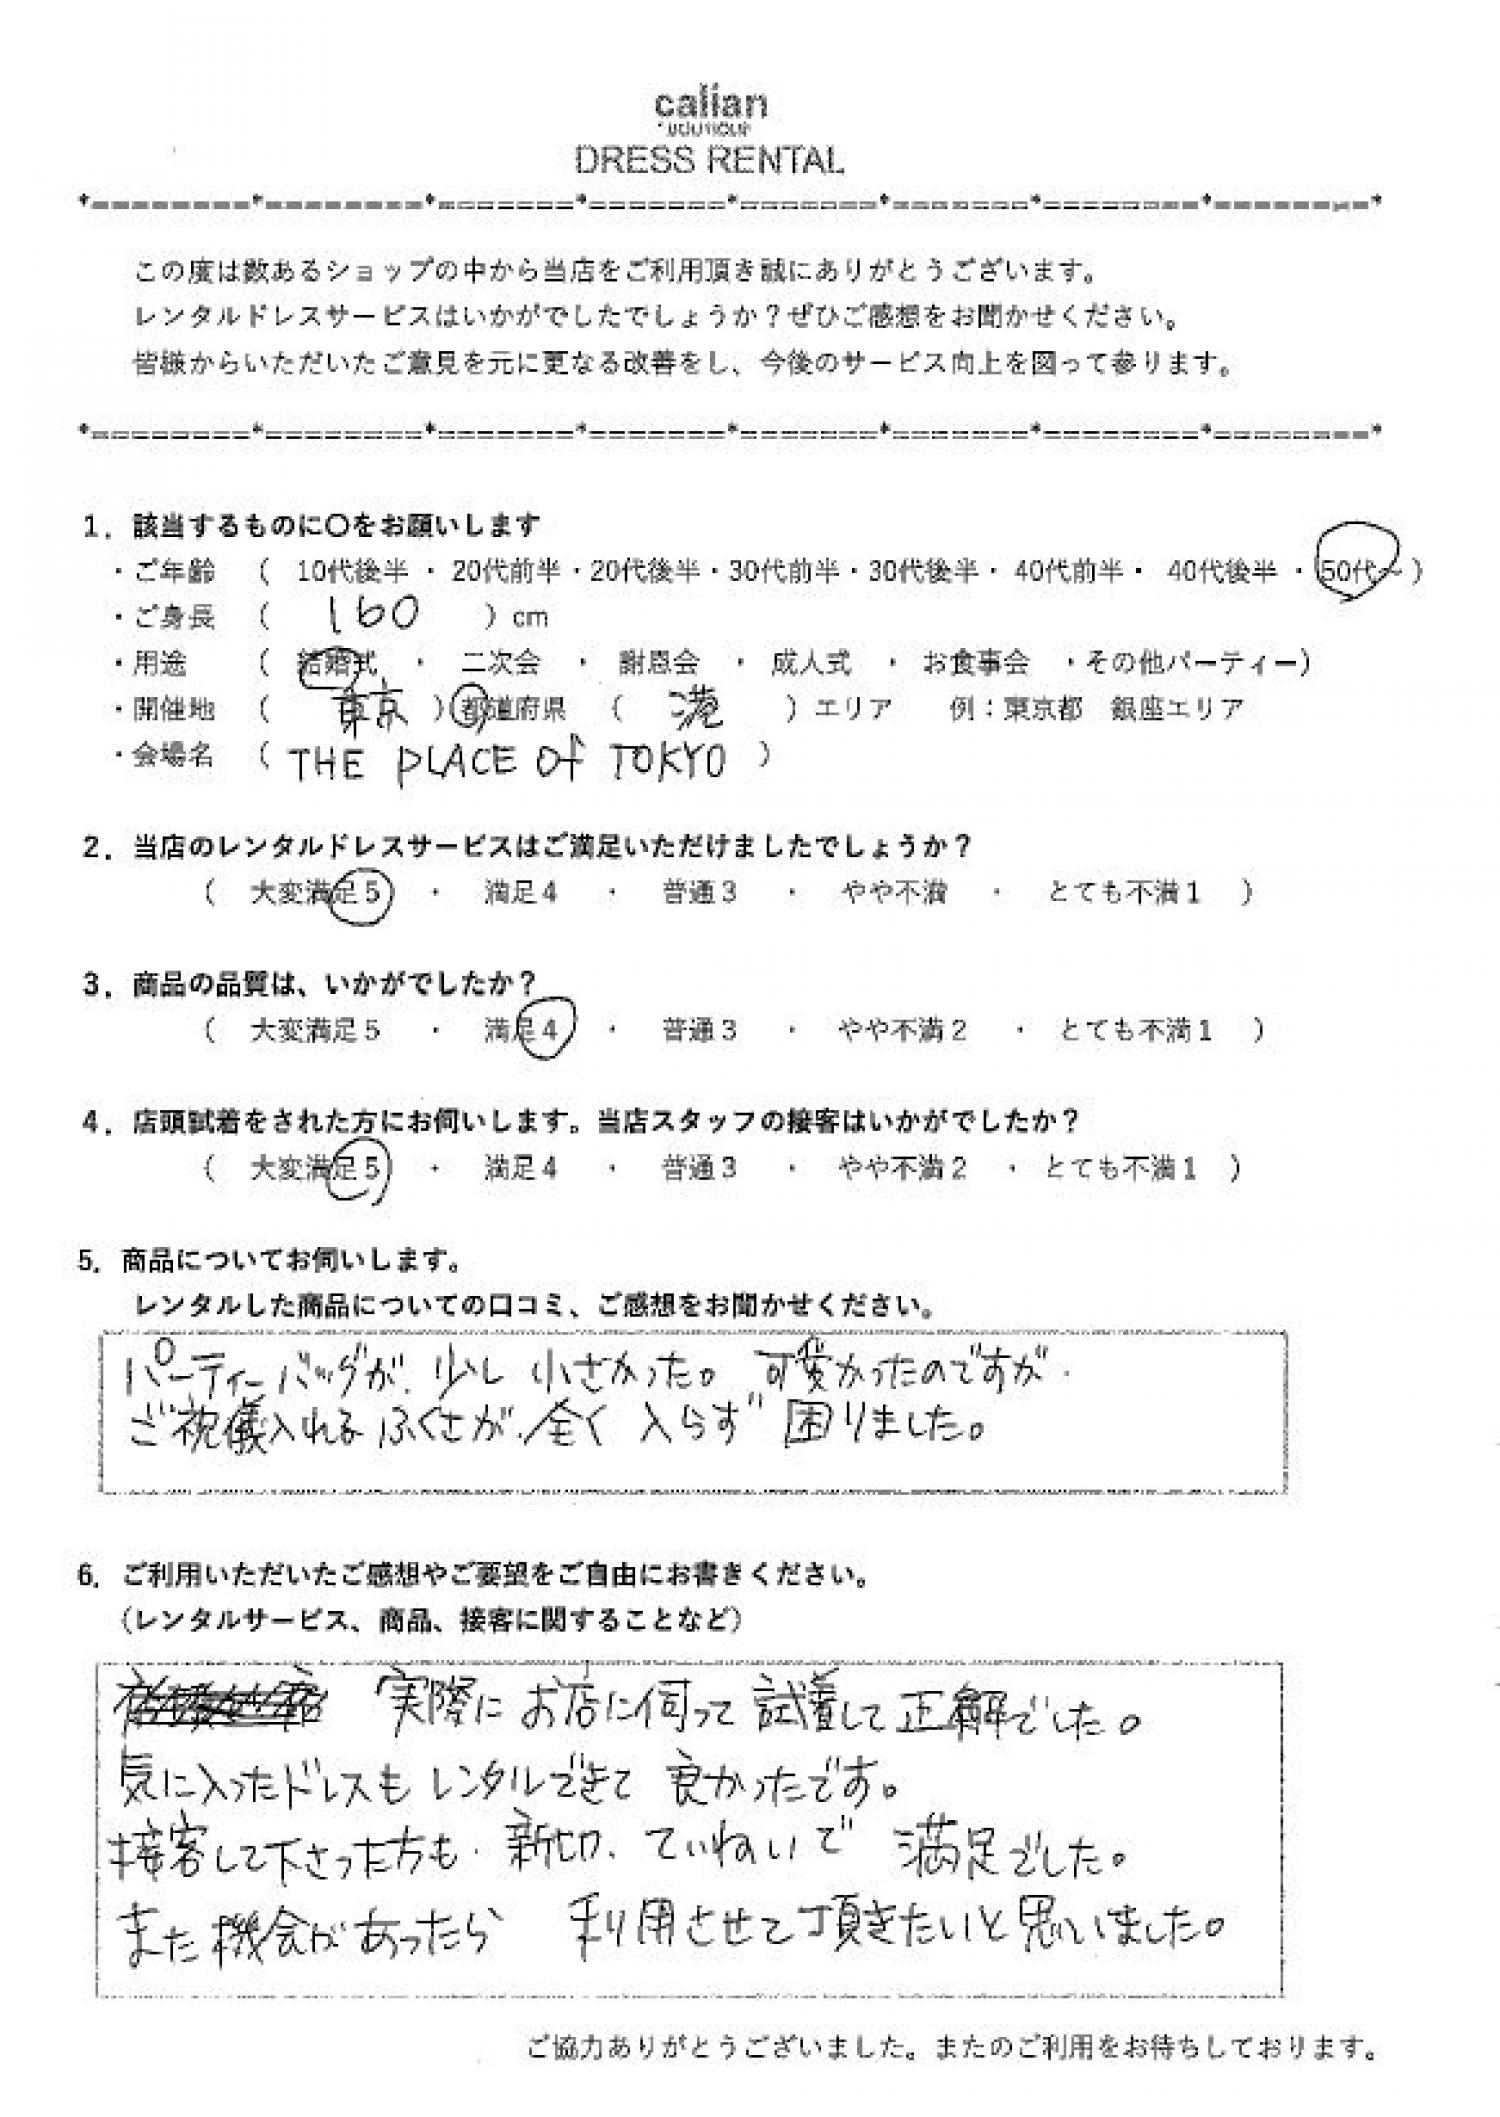 calian
BOUTIQUE
DRESS RENTAL
*=========*========*=======*=======*=======*=======*========*========*
この度は数あるショップの中から当店をご利用頂き誠にありがとうございます。
レンタルドレスサービスはいかがでしたでしょうか？ぜひご感想をお聞かせください。
皆様からいただいたご意見を元に更なる改善をし、今後のサービス向上を図って参ります。
*=========*========*=======*=======*=======*=======*========*========*
1．該当するものに〇をお願いします
・ご年齢 （ 10代後半 ・ 20代前半・20代後半・30代前半・30代後半・ 40代前半・ 40代後半 ・ 50代～ ）
・ご身長 （ 160 ）cm
・用途 （ 結婚式 ・ 二次会 ・ 謝恩会 ・ 成人式 ・ お食事会 ・その他パーティー）
・開催地 （ 東京 ）都道府県 （ 港 ）エリア 例：東京都 銀座エリア
・会場名 （ THE PLACE of TOKYO ）
2．当店のレンタルドレスサービスはご満足いただけましたでしょうか？
（ 大変満足5 ・ 満足4 ・ 普通3 ・ やや不満 ・ とても不満1 ）
3．商品の品質は、いかがでしたか？
（ 大変満足5 ・ 満足4 ・ 普通3 ・ やや不満2 ・ とても不満1 ）
4．店頭試着をされた方にお伺いします。当店スタッフの接客はいかがでしたか？
（ 大変満足5 ・ 満足4 ・ 普通3 ・ やや不満2 ・ とても不満1 ）
5．商品についてお伺いします。
レンタルした商品についての口コミ、ご感想をお聞かせください。
パーティーバッグが、少し小さかった。可愛かったのですが、
ご祝儀入れるふくさが、全く入らず困りました。
6．ご利用いただいたご感想やご要望をご自由にお書きください。
（レンタルサービス、商品、接客に関することなど）
実際にお店に伺って試着して正解でした。
気に入ったドレスもレンタルできて良かったです。
接客して下さった方も、新切、ていねいで満足でした。
また機会があったら 利用させて頂きたいと思いました。
ご協力ありがとうございました。またのご利用をお待ちしております。